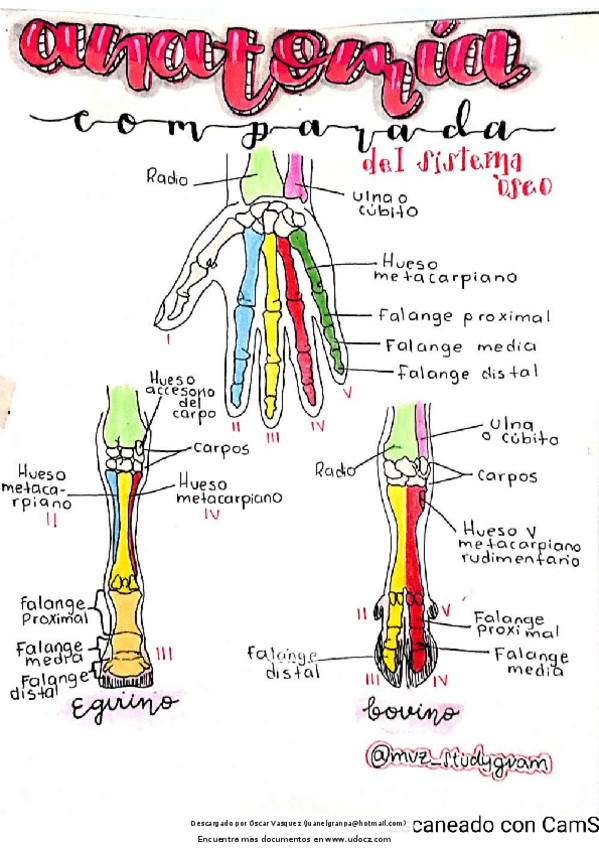 anatomía
comparada
del sistema
óseo
Radio
ulna o
cúbito
Hueso
metacarpiano
Falange proximal
Falange media
Falange distal
I
II
III
IV
V
Hueso
accesorio
del
carpo
carpos
Hueso
metaca-
rpiano
II
Hueso
metacarpiano
IV
Falange
Proximal
Falange
media
Falange
distal
III
Equino
Ulna
o cúbito
Radio
carpos
Hueso V
metacarpiano
rudimentario
II
V
Falange
proximal
Falange
media
Falange
distal
III
IV
bovino
@mvz_studygram
Descargado por Óscar Vasquez (juanelgranpa@hotmail.com)
Encuentra más documentos en www.udocz.com
caneado con CamS